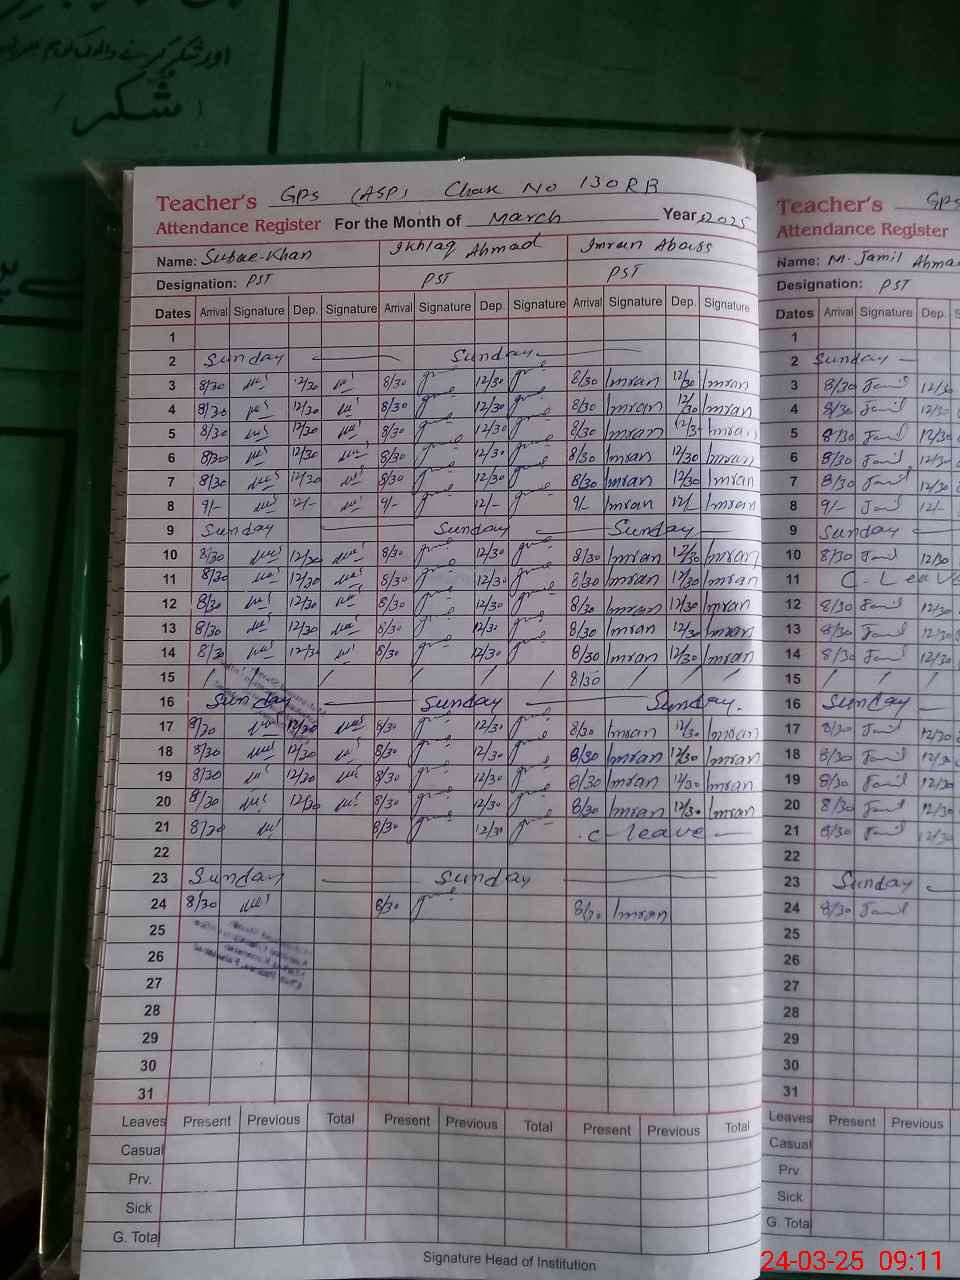 اور شکر کرنے والوں کو ہم
(شکر)
Teacher's GPS (ASP) Chak No 130 RB
Attendance Register For the Month of March Year 2025
Name: Ikhlaq Ahmad Imran Abass
Designation: PST PST PST
Dates Arrival Signature Dep. Signature Arrival Signature Dep. Signature Arrival Signature Dep. Signature
1
2 Sunday Sunday
3 8/30 12/30 8/30 12/30 8/30 Imran 12/30 Imran
4 8/30 12/30 8/30 12/30 8/30 Imran 12/30 Imran
5 8/30 12/30 8/30 12/30 8/30 Imran 12/3 Imran
6 8/30 12/30 8/30 12/30 8/30 Imran 12/30 Imran
7 8/30 12/30 8/30 12/30 8/30 Imran 12/30 Imran
8 9/- 12/- 9/- 12/- 9/- Imran 12/- Imran
9 Sunday Sunday Sunday
10 8/30 12/30 8/30 12/30 8/30 Imran 12/30 Imran
11 8/30 12/30 8/30 12/30 8/30 Imran 12/30 Imran
12 8/30 12/30 8/30 12/30 8/30 Imran 12/30 Imran
13 8/30 12/30 8/30 12/30 8/30 Imran 12/30 Imran
14 8/3 12/30 8/30 12/30 8/30 Imran 12/30 Imran
15 / / / / / / / 8/30 / / /
16 Sunday Sunday Sunday.
17 8/30 12/30 8/30 12/30 8/30 Imran 12/30 Imran
18 8/30 12/30 8/30 12/30 8/30 Imran 12/30 Imran
19 8/30 12/30 8/30 12/30 8/30 Imran 12/30 Imran
20 8/30 12/30 8/30 12/30 8/30 Imran 12/30 Imran
21 8/30 8/30 12/30 C-leave
22
23 Sunday Sunday
24 8/30 8/30 8/30 Imran
25
26
27
28
29
30
31
Leaves Present Previous Total Present Previous Total Present Previous Total
Casual
Prv.
Sick
G. Total
Signature Head of Institution
Teacher's GPS
Attendance Register
Name: M. Jamil Ahma
Designation: PST
Dates Arrival Signature Dep.
1
2 Sunday
3 8/30 Jamil 12/30
4 8/30 Jamil 12/30
5 8/30 Jamil 12/30
6 8/30 Jamil 12/30
7 8/30 Jamil 12/30
8 9/- Jamil 12/-
9 Sunday
10 8/30 Jamil 12/30
11 C-Leave
12 8/30 Jamil 12/30
13 8/30 Jamil 12/30
14 8/30 Jamil 12/30
15 / / /
16 Sunday
17 8/30 Jamil 12/30
18 8/30 Jamil 12/30
19 8/30 Jamil 12/30
20 8/30 Jamil 12/30
21 8/30 Jamil 12/30
22
23 Sunday
24 8/30 Jamil
25
26
27
28
29
30
31
Leaves Present Previous
Casual
Prv
Sick
G. Total
24-03-25 09:11